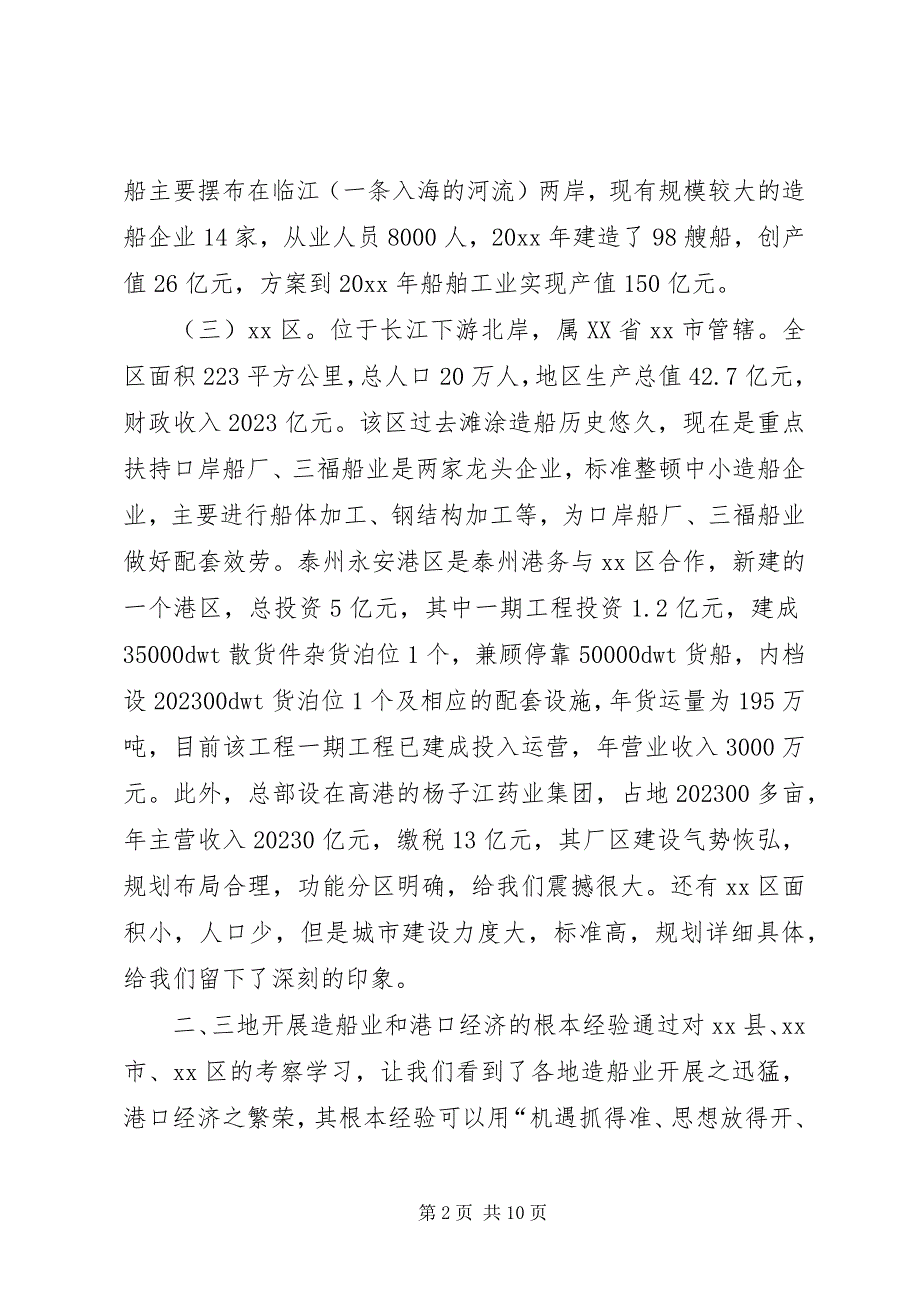 船主要摆布在临江（一条入海的河流）两岸，现有规模较大的造
船企业 14 家，从业人员 8000 人，20xx 年建造了 98 艘船，创产
值 26 亿元，方案到 20xx 年船舶工业实现产值 150 亿元。
（三）xx 区。位于长江下游北岸，属 XX 省 xx 市管辖。全
区面积 223 平方公里，总人口 20 万人，地区生产总值 42.7 亿元，
财政收入 2023 亿元。该区过去滩涂造船历史悠久，现在是重点
扶持口岸船厂、三福船业是两家龙头企业，标准整顿中小造船企
业，主要进行船体加工、钢结构加工等，为口岸船厂、三福船业
做好配套效劳。泰州永安港区是泰州港务与 xx 区合作，新建的
一个港区，总投资 5 亿元，其中一期工程投资 1.2 亿元，建成
35000dwt 散货件杂货泊位 1 个，兼顾停靠 50000dwt 货船，内档
设 202300dwt 货泊位 1 个及相应的配套设施，年货运量为 195 万
吨，目前该工程一期工程已建成投入运营，年营业收入 3000 万
元。此外，总部设在高港的杨子江药业集团，占地 202300 多亩，
年主营收入 20230 亿元，缴税 13 亿元，其厂区建设气势恢弘，
规划布局合理，功能分区明确，给我们震撼很大。还有 xx 区面
积小，人口少，但是城市建设力度大，标准高，规划详细具体，
给我们留下了深刻的印象。
二、三地开展造船业和港口经济的根本经验通过对 xx 县、xx
市、xx 区的考察学习，让我们看到了各地造船业开展之迅猛，
港口经济之繁荣，其根本经验可以用“机遇抓得准、思想放得开、
第 2 页 共 10 页